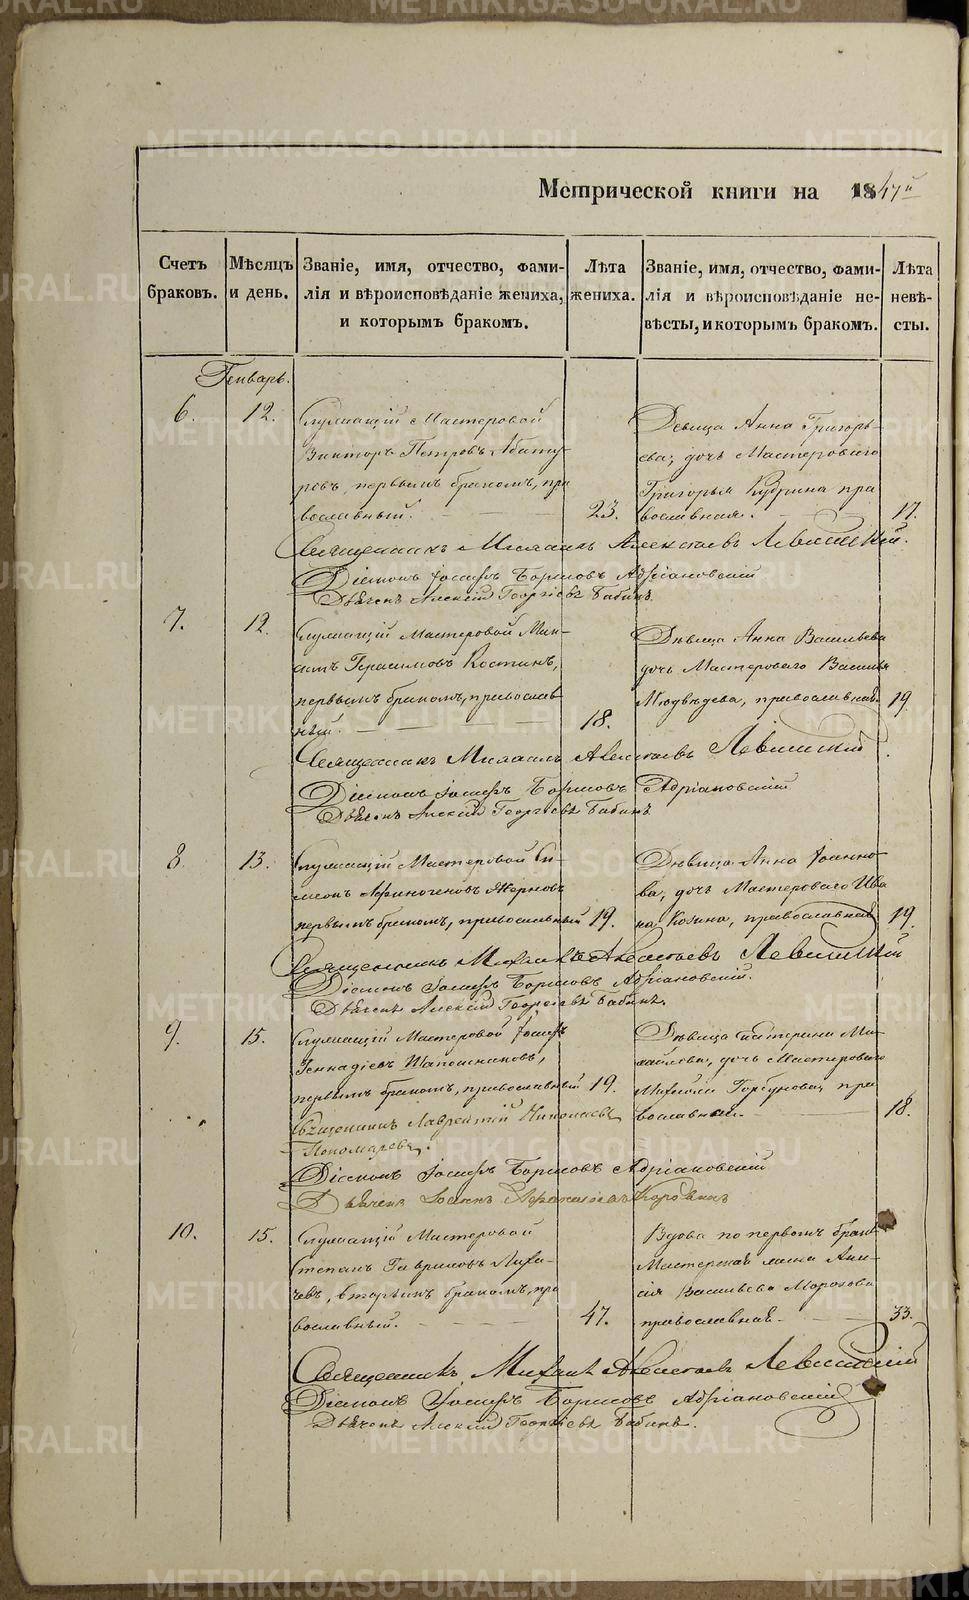 Метрической книги на 1847й
Счетъ браковъ.
Мѣсяцъ и день.
Званіе, имя, отчество, фами-
лія и вѣроисповѣданіе жениха,
и которымъ бракомъ.
Лѣта жениха.
Званіе, имя, отчество, фами-
лія и вѣроисповѣданіе не-
вѣсты, и которымъ бракомъ.
Лѣта невѣ-
сты.
Генварь.
6. 12.
Служащій Мастеровой
Викторъ Петровъ
ровъ, первымъ бракомъ, пра
вославный.
23.
Девица Анна Григорь-
ева, дочь Мастероваго
Григорья Кудрина пра
вославная.
17.
Священникъ Михаилъ Алексіевъ Левитскій.
Діаконъ Іосифъ Борисовъ Адріановскій
Дьячекъ Алексій Георгіевъ Бабинъ.
7. 12.
Служащій Мастеровой
Герасимовъ Костинъ,
первымъ бракомъ, православ
ный.
18.
Дѣвица Анна Васильева
дочь Мастероваго Василья
Медвѣдева, православная.
19.
Священникъ Михаилъ Алексіевъ Левитскій
Діаконъ Іосифъ Борисовъ Адріановскій
Дьячекъ Алексій Георгіевъ Бабинъ
8. 13.
Служащій Мастеровой Си-
меонъ Афиногеновъ Жерновъ
первымъ бракомъ, православный
19.
Дѣвица Анна Іоанно-
ва, дочь Мастероваго Ива
на Козина, православная
19.
Священникъ Михаилъ Алексіевъ Левитскій
Діаконъ Іосифъ Борисовъ Адріановскій.
Дьячекъ Алексій Георгіевъ Бабинъ.
9. 15.
Служащій Мастеровой Іосифъ
Геннадіевъ Шапошниковъ,
первымъ бракомъ, православный
19.
Дѣвица Катерина Ми-
хайлова, дочь Мастероваго
Михаила Горбунова, пра
вославная.
18.
Священникъ Лаврентій Николаевъ
Пономаревъ.
Діаконъ Іосифъ Борисовъ Адріановскій
Дьячекъ Іоаннъ
10. 15.
Служащій Мастеровой
Степанъ Гавриловъ Лиха-
чевъ, вторымъ бракомъ, пра
вославный.
47.
Вдова по первомъ бракѣ
Мастерская жена Ани-
сія Васильева Морозова
православная.
33.
Священникъ Михаилъ Алексіевъ Левитскій
Діаконъ Іосифъ Борисовъ Адріановскій
Дьячекъ Алексій Георгіевъ Бабинъ.
METRIKI.GASO-URAL.RU